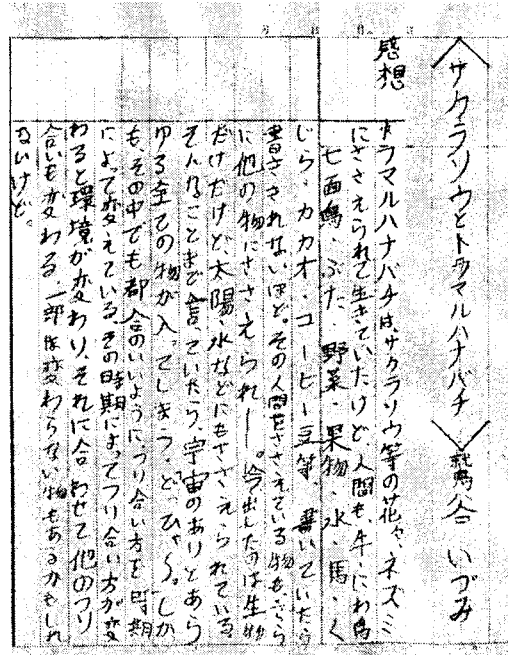 サクラソウとトラマルハナバチ
谷 いづみ
感想
トラマルハナバチは、サクラソウ等の花や、ネズミ
にささえられて生きていたけど人間も、牛・にわ鳥
・七面鳥・ぶた・野菜・果物・水・馬・く
じら・カカオ・コーヒー豆等、書いていたら
書ききれないほど。その人間をささえている物も、さら
に他の物にささえられー。今出したのは生物
だけだけど、太陽、水などにもささえられている
そんなことまで言っていたら、宇宙のありとあら
ゆる全ての物が入ってしまう、ど、ひゃ〜。しか
も、その中でも都合のいいように、つり合い方を時期
によって変えている。その時期によってつり合い方が変
わると環境が変わり、それに合わせて他のつり
合いも変わる。一部は変わらない物もあるかもしれ
ないけど。